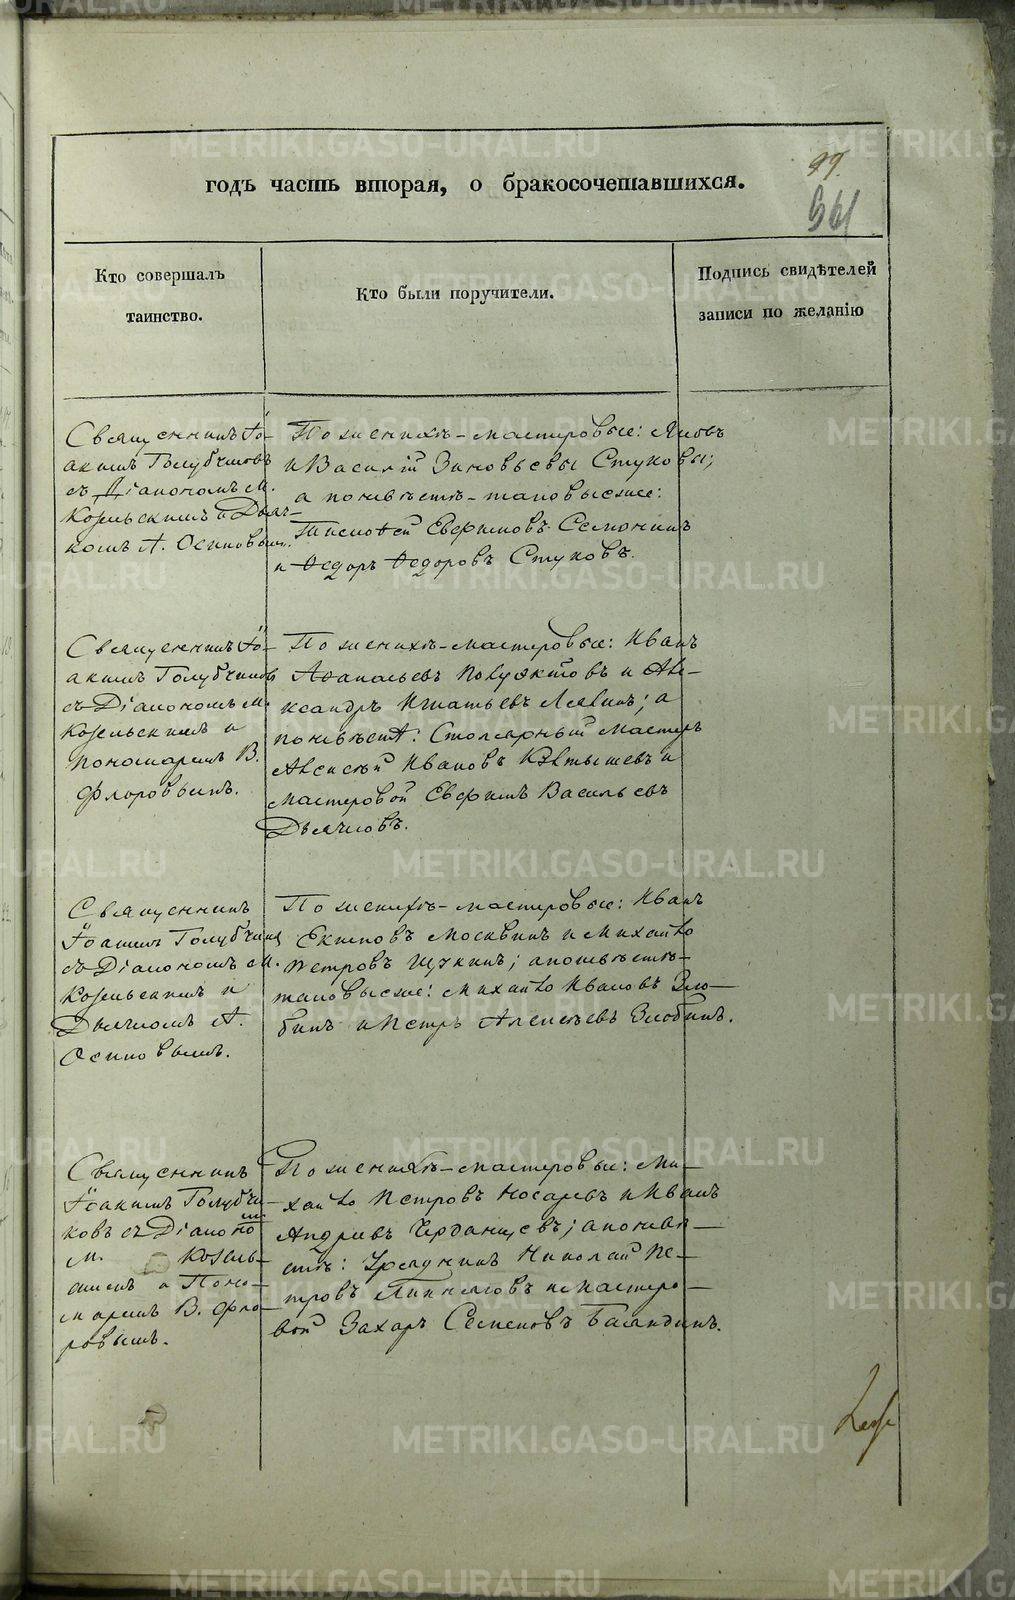 99.
961
годъ часть вторая, о бракосочетавшихся.
Кто совершалъ
таинство.
Кто были поручители.
Подпись свидѣтелей
записи по желанію
Священникъ Іо-
акимъ Голубчиковъ
съ Діакономъ М.
Козельскимъ и Дьяч-
комъ А. Осиповымъ.
По женихѣ - мастеровые: Яковъ
и Василій Зиновьевы Стуковы;
а по невѣстѣ - таковые же:
Тимоѳей Евфимовъ
и Ѳедоръ Ѳедоровъ Стуковъ.
Священникъ Іо-
акимъ Голубчиковъ
съ Діакономъ М.
Козельскимъ и
Пономаремъ В.
Флоровымъ.
По женихѣ - мастеровые: Иванъ
Аѳанасьевъ Полуэктовъ и Але-
ксандръ Игнатьевъ; а
по невѣстѣ: Столярный мастеръ
Алексѣй Ивановъ и
мастеровой Евфимъ Васильевъ
Дьячковъ.
Священникъ
Іоакимъ Голубчиковъ
съ Діакономъ М.
Козельскимъ и
Дьячкомъ А.
Осиповымъ.
По женихѣ - мастеровые: Иванъ
Екимовъ Москвинъ и Михайло
Петровъ Щукинъ; а по невѣстѣ -
таковые же: Михайло Ивановъ Зло-
бинъ и Петръ Алексѣевъ Злобинъ.
Священникъ
Іоакимъ Голубчи-
ковъ съ Діакономъ
М. Козель-
скимъ и Поно-
маремъ В. Фло-
ровымъ.
По женихѣ - мастеровые: Ми-
хайло Петровъ Носаревъ и Иванъ
Андреевъ Черданцевъ; а по невѣ-
стѣ: Урядникъ Николай Пе-
тровъ и мастеро-
вой Захаръ Семеновъ Баландинъ.
METRIKI.GASO-URAL.RU